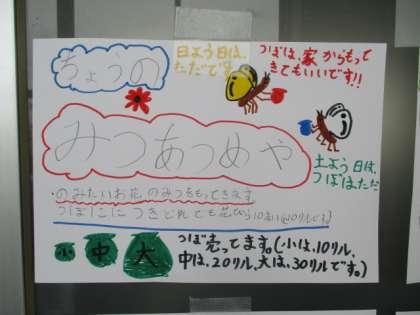 ちょうの
日よう日は、
ただです
つぼは、家からもって
きてもいいです!!
みつあつめや
土よう日は、
つぼはただ
・のみたいお花のみつをもってきます
つぼ1こにつきどれでも花びら10まい(10リルです)
小 中 大
つぼ売ってます。(小は、10リル、
中は、20リル、大は、30リルです。)